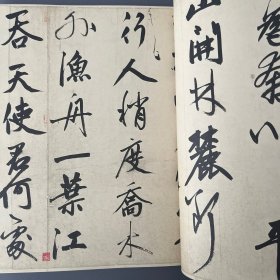 奔川平
山開林麓斷
行人稍度喬木
外漁舟一葉江
吞天使君何處